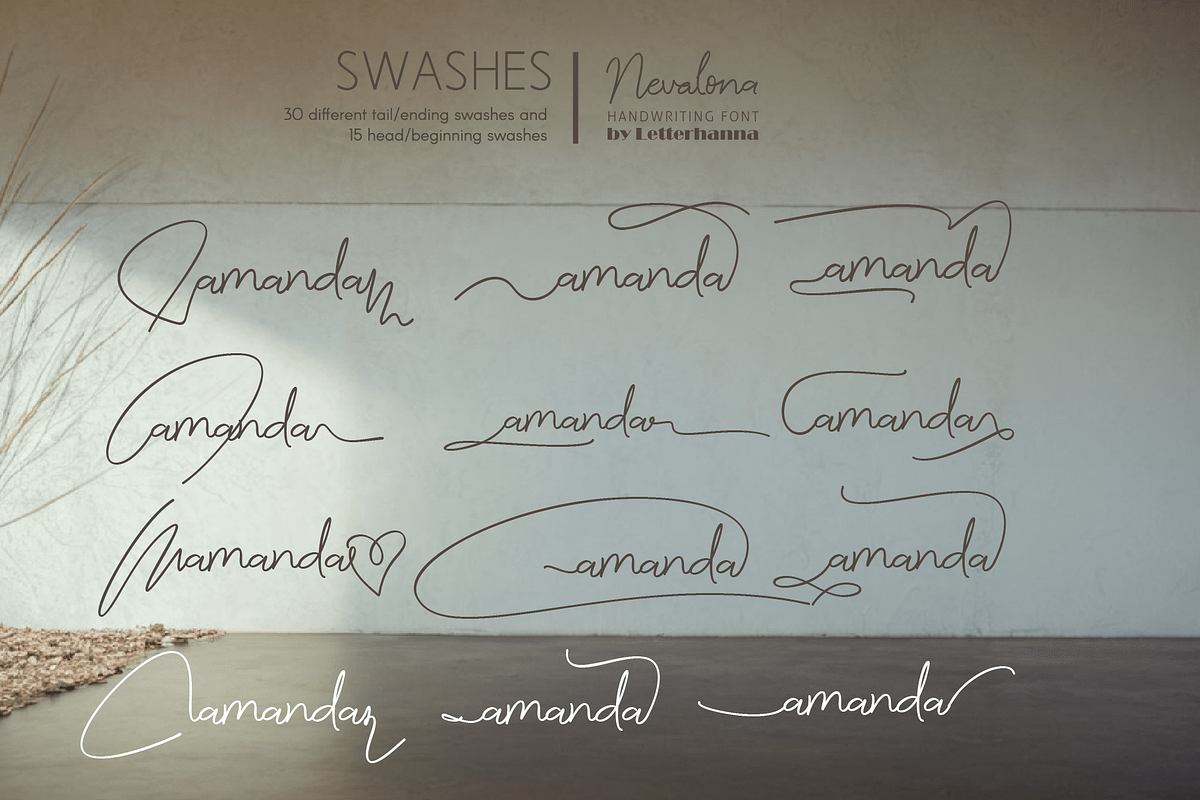 SWASHES
30 different tail/ending swashes and
15 head/beginning swashes
Nevalona
HANDWRITING FONT
by Letterhanna
amanda
amanda
amanda
amanda
amanda
amanda
amanda
amanda
amanda
amanda
amanda
amanda